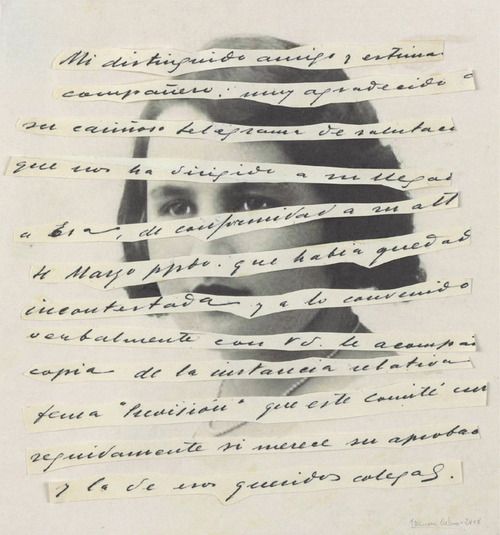 Mi distinguido amigo y estima
compañero: muy agradecido a
su cariñoso telegrama de salutaci
que nos ha dirigido a su llegad
a Esa, de conformidad a su att
4 Marzo ppdo. que había quedad
incontestada y a lo convenido
verbalmente con Vd. le acompañ
copia de la instancia relativa
tema "Previsión" que este Comité
seguidamente si merece su aprobac
y la de esos queridos colegas.
2018